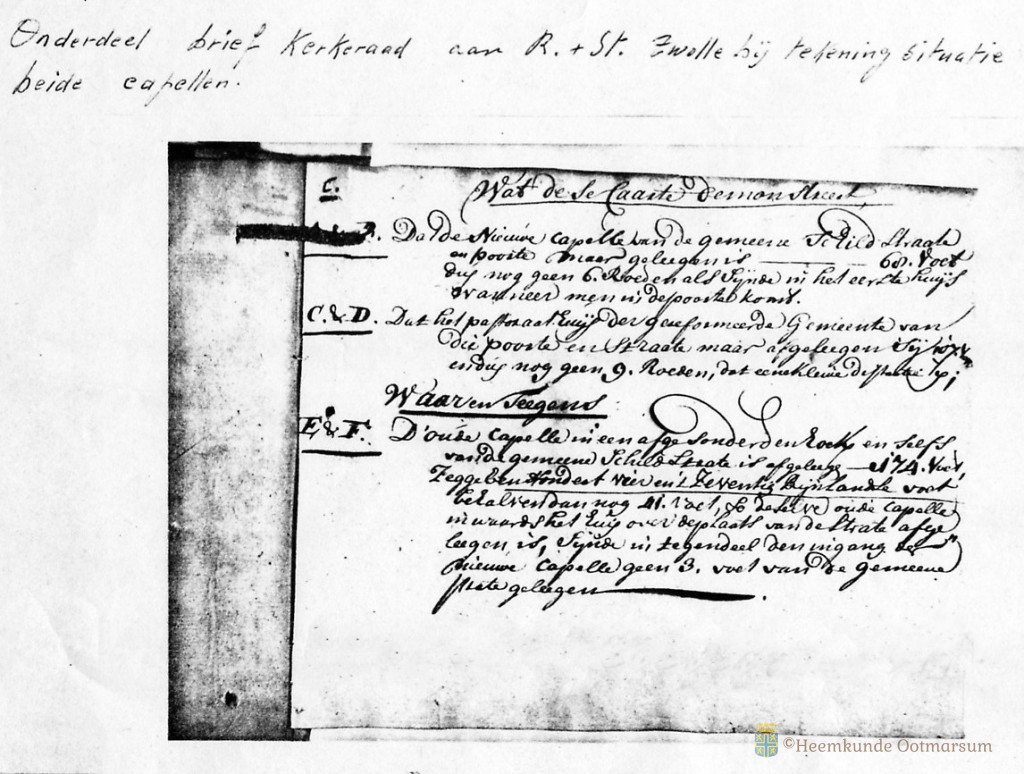 Onderdeel brief Kerkeraad aan R. + St. Zwolle bij tekening situatie
beide capellen.
C. Wat de se Caarte demonstreert,
B. Dat de Nieuwe Capelle van de gemeene Schild Straate
en poorte maar geleegen is — 68. Voet
dus nog geen 6. Roeden als Sijnde in het eerste huijs
wanneer men in de poorte komt.
C. & D. Dat het pastoraat huijs der gereformeerde Gemeente van
die poorte en Straate maar afgeleegen Sij
en dus nog geen 9. Roeden, dat eene kleine distantie is;
Waar en Teegens
E. & F. D'oude Capelle in een afgesonderden hoek en selfs
van de gemeene Schild Straate is afgeleege — 174. Voet,
Zegge Een Hondert vier en t Zeventig Rijnlandse voet
behalven dan nog 41. voet, die deselve oude Capelle
inwaards het huijs over de plaats van de strate afge
leegen is, Sijnde in tegendeel den ingang der
nieuwe Capelle geen 3. voet van de gemeene
strate geleegen.
©Heemkunde Ootmarsum